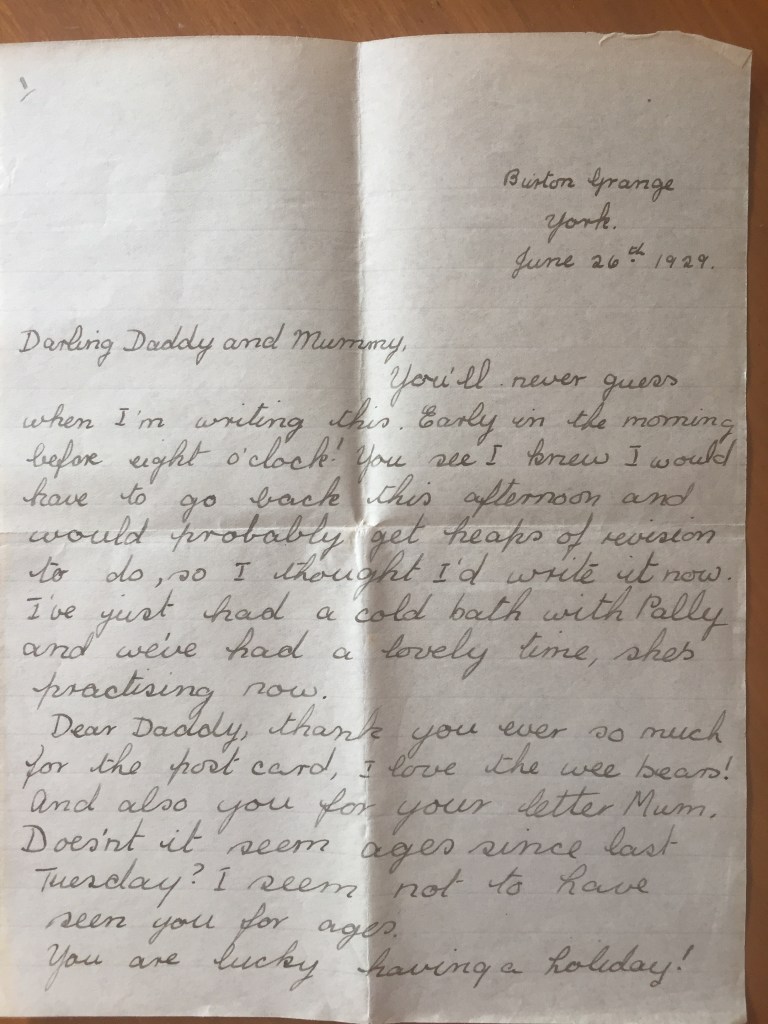 Burton Grange
York.
June 26th 1929.
Darling Daddy and Mummy,
You'll never guess
when I'm writing this. Early in the morning
before eight o'clock! You see I knew I would
have to go back this afternoon and
would probably get heaps of revision
to do, so I thought I'd write it now.
I've just had a cold bath with Pally
and we've had a lovely time, she's
practising now.
Dear Daddy, thank you ever so much
for the post card, I love the wee bears!
And also you for your letter Mum.
Does'nt it seem ages since last
Tuesday? I seem not to have
seen you for ages.
You are lucky having a holiday!